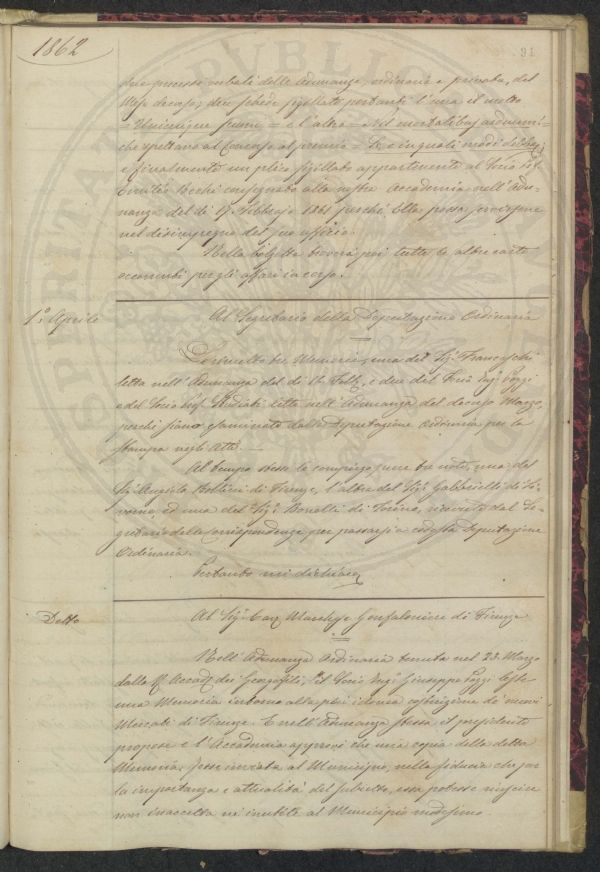 1862
91
due processi verbali delle Adunanze, ordinaria e privata, del
Mese decorso; due schede sigillate portanti l'una il motto
= Unicuique suum = e l'altra = Nil mortalibus arduum =
che spettano al Concorso al premio
e finalmente un plico sigillato appartenente al Socio
Emilio Bechi consegnato alla nostra Accademia nell'Adu-
nanza del dì 17 Febbrajo 1861 perchè Ella possa
nel disimpegno del suo uffizio.
Nella bolgetta troverà poi tutte le altre carte
occorrenti per gli affari in corso.
1º Aprile
Al Segretario della Deputazione Ordinaria
Le rimetto tre Memorie, una del Sig. Franceschi
letta nell'Adunanza del dì Febb., e due del Socio Ing. Poggi
e del Socio Studiati lette nell'Adunanza del decorso Marzo,
perchè siano esaminate dalla Deputazione Ordinaria per la
stampa negli Atti.
Al tempo stesso le compiego pure tre note, una del
Sig. Angiolo Bellieri di Firenze, l'altra del Sig. Gabbrielli di
ed una del Sig. Bonelli di Torino, ricevute dal Se-
gretario delle Corrispondenze per passarsi a codesta Deputazione
Ordinaria.
Pertanto mi dichiaro
Detto
Al Sig. Cav. Marchese Gonfaloniere di Firenze
Nell'Adunanza Ordinaria tenuta nel 23. Marzo
dalla R. Accad. dei Georgofili, il Socio Ing. Giuseppe Poggi lesse
una Memoria intorno alla più idonea costruzione de' nuovi
Mercati di Firenze. E nell'Adunanza stessa il presidente
propose e l'Accademia approvò che una copia della detta
Memoria fosse inviata al Municipio, nella fiducia che per
la importanza e attualità del subietto, essa potesse riuscire
non inaccetta nè inutile al Municipio medesimo.